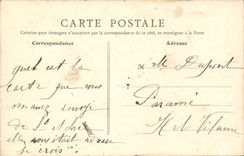 CARTE POSTALE
Certains pays étrangers n'acceptent pas la correspondance de ce côté, se renseigner à la Poste
Correspondance
Adresse
quel est la
carte que vous
m'avez envoyé
de St
elle vous était
Je crois
M Dupont
Paramé
Ille et Vilaine